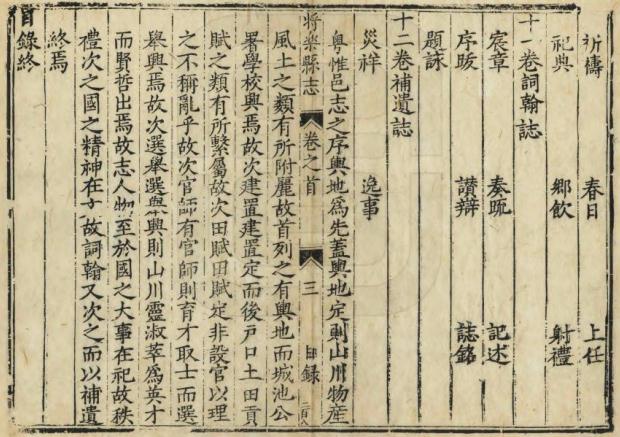 祈禱 春日 上任
祀典 鄉飲 射禮
十一卷詞翰志
宸章 奏疏 記述
序跋 讚辯 誌銘
題詠
十二卷補遺志
災祥 逸事
將樂縣志 卷之首 三 目錄
粵惟邑志之序輿地爲先蓋輿地定則山川物產
風土之類有所附麗故首列之有輿地而城池公
署學校興焉故次建置建置定而後戶口土田貢
賦之類有所繫屬故次田賦田賦定非設官以理
之不稱亂乎故次官師有官師則育才取士而選
舉興焉故次選舉選舉興則山川靈淑萃爲英才
而賢哲出焉故志人物至於國之大事在祀故秩
禮次之國之精神在文故詞翰又次之而以補遺
終焉
目錄終